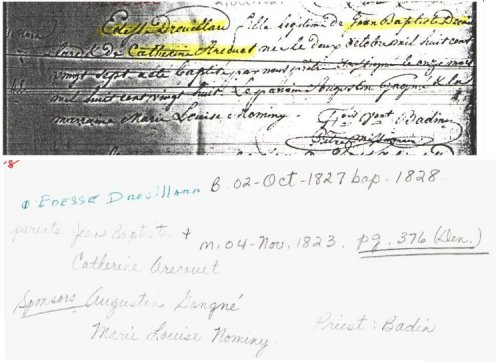 Edesse Drouillard fille legitime de Jean Baptiste Drou
illard & de Catherine Arecouet née le deux octobre mil huit cent
vingt sept a été baptisé par nous prêtre le onze mai
mil huit cent vingt huit Le parain Augustin Gagné & la
marraine Marie Louise Nominy
Vent Badin
Prêtre Missionnaire
8
EDESSE DROUILLARD B. 02-Oct-1827 bap. 1828.
parents Jean Baptiste +
m. 04-Nov. 1823. pg. 376 (Den.)
Catherine Arecouet
Sponsors Augustin Gangné
Marie Louise Nominy.
Priest: Badin